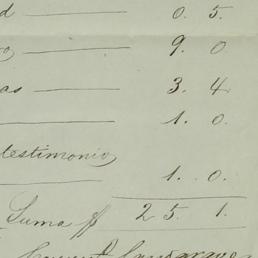 d 0. 5.
o 9. 0
as 3. 4
1. 0.
testimonio
1. 0.
Suma $ 2 5. 1.